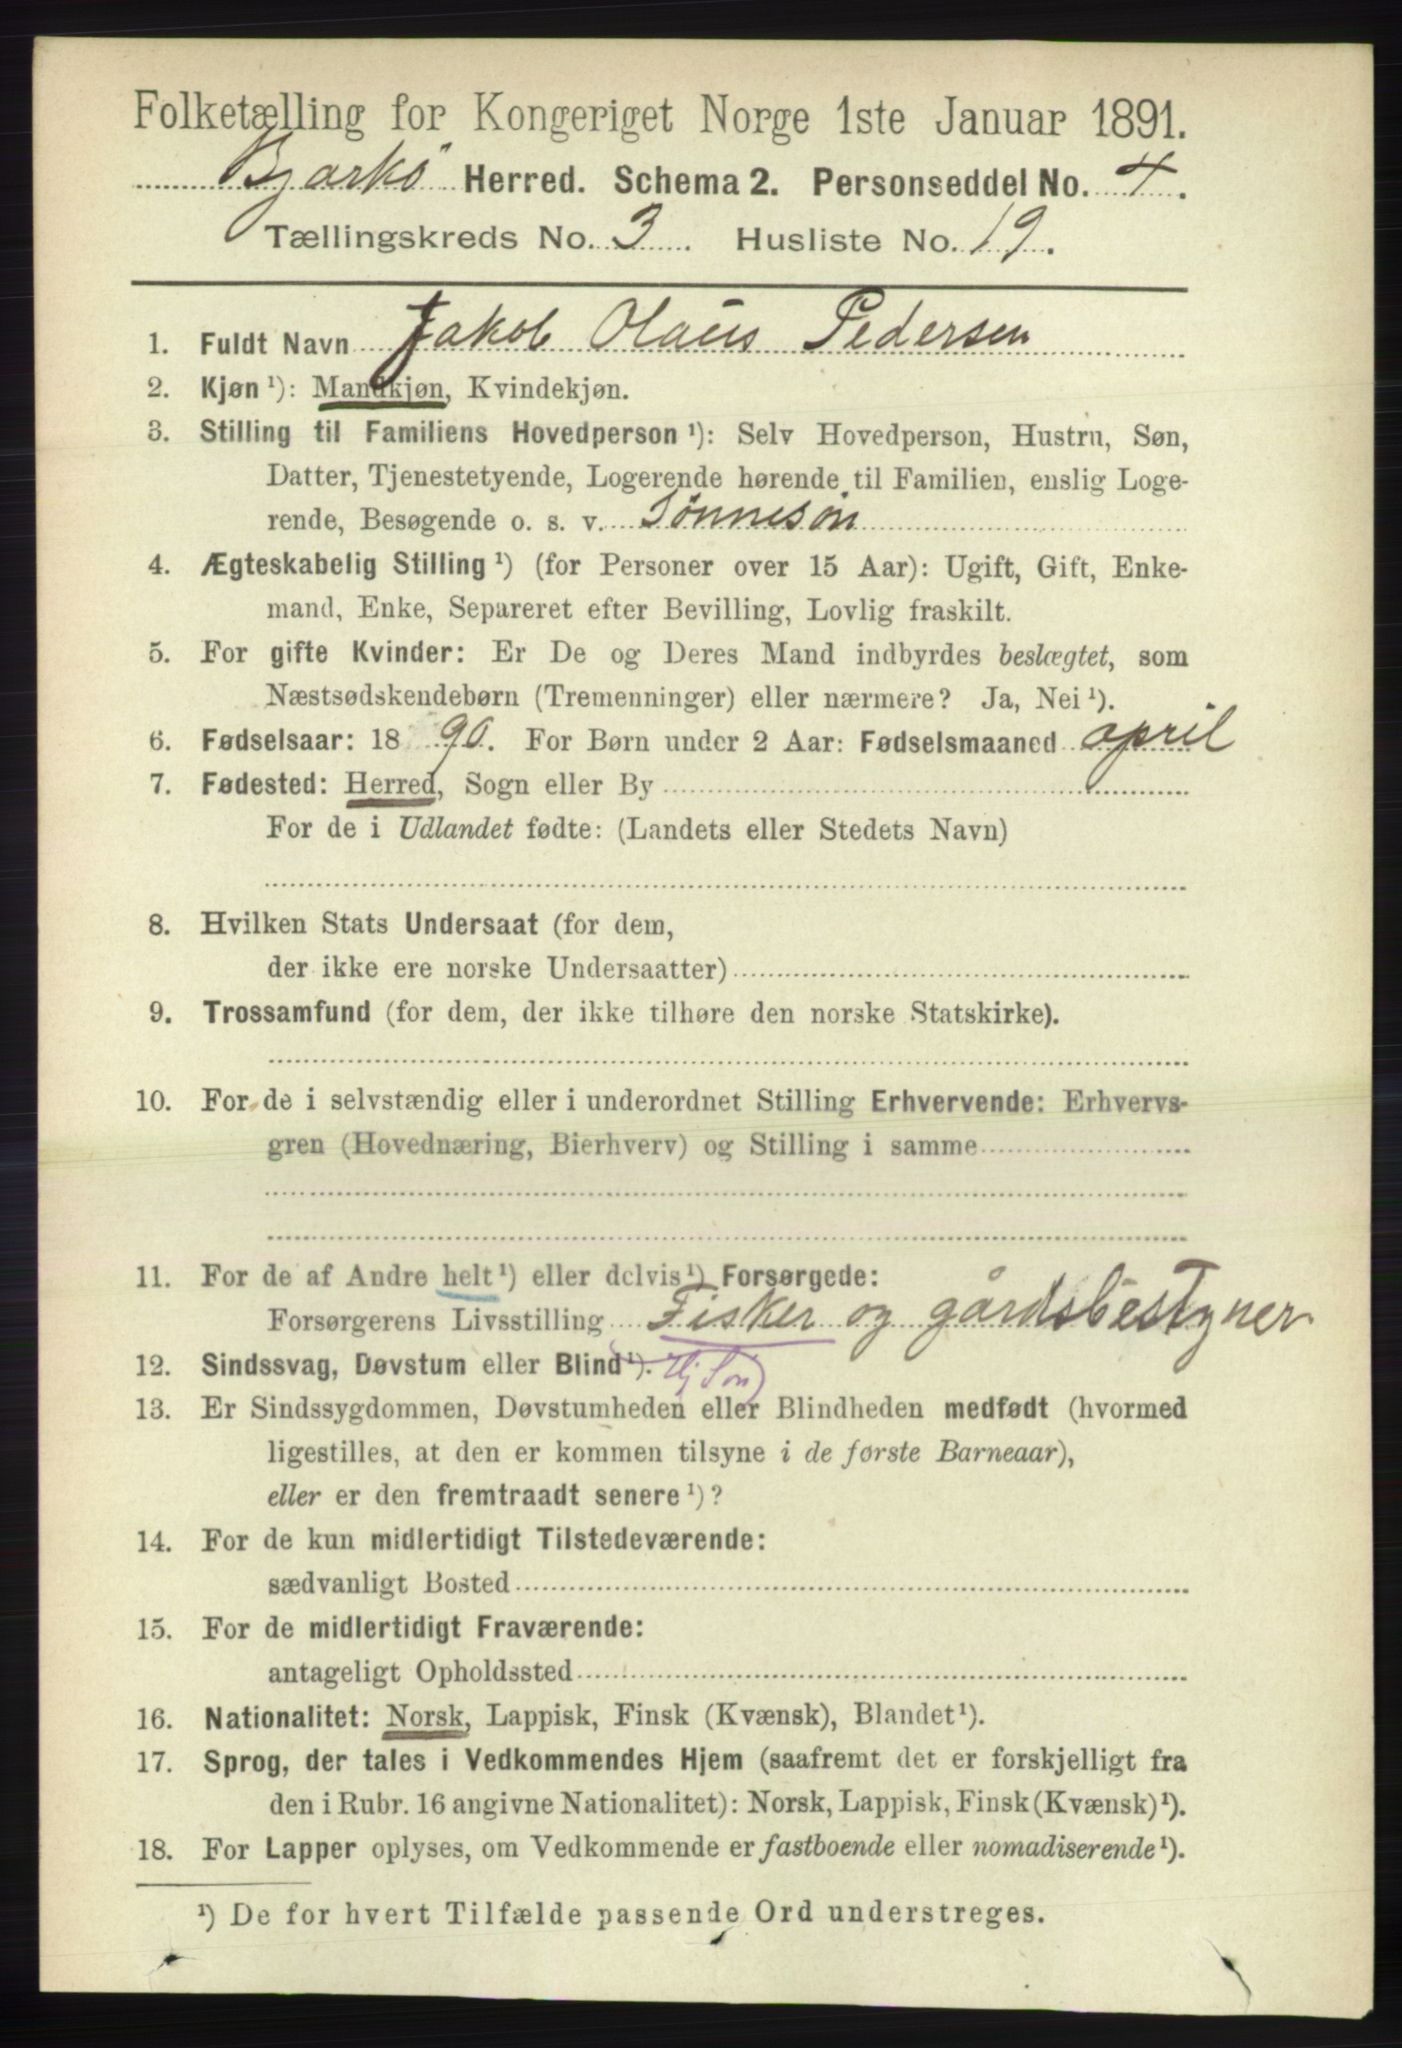 Folketælling for Kongeriget Norge 1ste Januar 1891.
Bjarkö Herred. Schema 2. Personseddel No. 4.
Tællingskreds No. 3. Husliste No. 19.
1. Fuldt Navn Jakob Olaus Pedersen
2. Kjøn ¹): Mandkjøn, Kvindekjøn.
3. Stilling til Familiens Hovedperson ¹): Selv Hovedperson, Hustru, Søn,
Datter, Tjenestetyende, Logerende hørende til Familien, enslig Loge-
rende, Besøgende o. s. v. Sønnesøn
4. Ægteskabelig Stilling ¹) (for Personer over 15 Aar): Ugift, Gift, Enke-
mand, Enke, Separeret efter Bevilling, Lovlig fraskilt.
5. For gifte Kvinder: Er De og Deres Mand indbyrdes beslægtet, som
Næstsødskendebørn (Tremenninger) eller nærmere? Ja, Nei ¹).
6. Fødselsaar: 1890. For Børn under 2 Aar: Fødselsmaaned april
7. Fødested: Herred, Sogn eller By
For de i Udlandet fødte: (Landets eller Stedets Navn)
8. Hvilken Stats Undersaat (for dem,
der ikke ere norske Undersaatter)
9. Trossamfund (for dem, der ikke tilhøre den norske Statskirke).
10. For de i selvstændig eller i underordnet Stilling Erhvervende: Erhvervs-
gren (Hovednæring, Bierhverv) og Stilling i samme
11. For de af Andre helt ¹) eller delvis ¹) Forsørgede:
Forsørgerens Livsstilling Fisker og gårdsbestyrer
12. Sindssvag, Døvstum eller Blind ¹).
13. Er Sindssygdommen, Døvstumheden eller Blindheden medfødt (hvormed
ligestilles, at den er kommen tilsyne i de første Barneaar),
eller er den fremtraadt senere ¹)?
14. For de kun midlertidigt Tilstedeværende:
sædvanligt Bosted
15. For de midlertidigt Fraværende:
antageligt Opholdssted
16. Nationalitet: Norsk, Lappisk, Finsk (Kvænsk), Blandet ¹).
17. Sprog, der tales i Vedkommendes Hjem (saafremt det er forskjelligt fra
den i Rubr. 16 angivne Nationalitet): Norsk, Lappisk, Finsk (Kvænsk) ¹).
18. For Lapper oplyses, om Vedkommende er fastboende eller nomadiserende ¹).
¹) De for hvert Tilfælde passende Ord understreges.